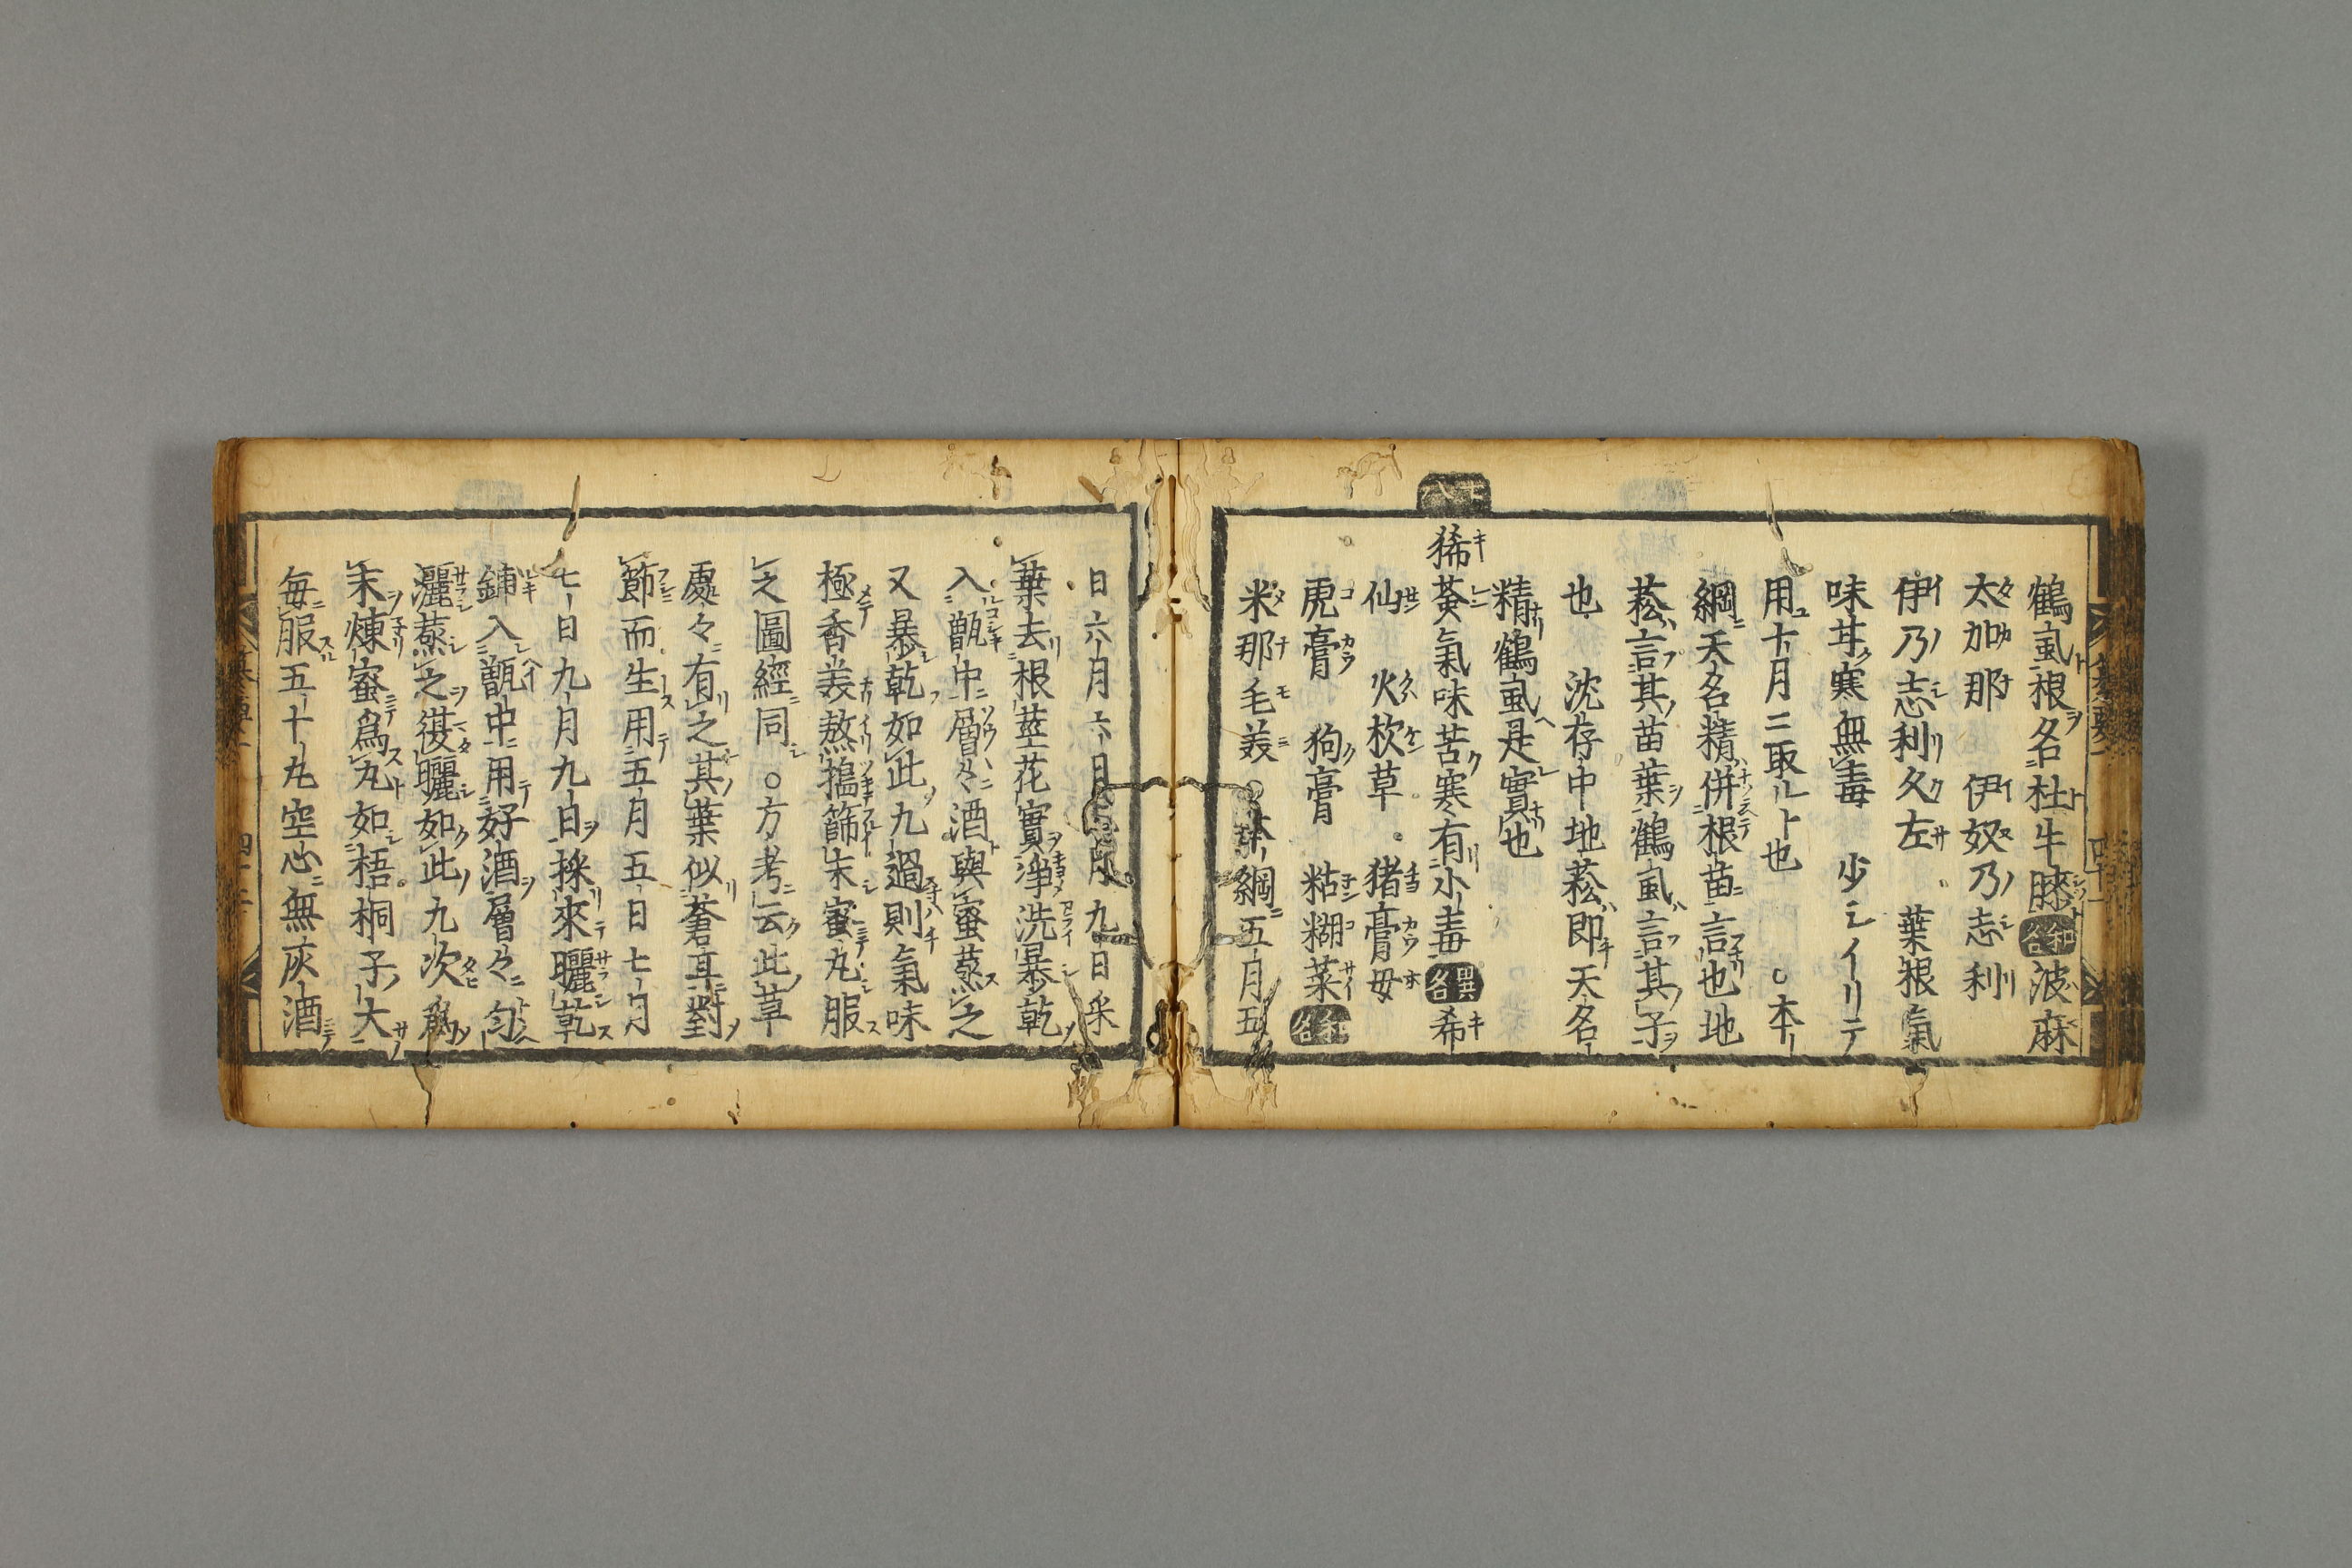 鶴虱根名杜牛膝和名波麻
太加那 伊奴乃志利
伊乃志利久左 葉根氣
味甘寒無毒 少シイリテ
用十月ニ取ルト也 ○本
綱天名精併根苗言也地
菘言其苗葉鶴虱言其子
也 沈存中地菘即天名
精鶴虱是實也
豨薟氣味苦寒有小毒異名希
仙 火杴草 猪膏母
虎膏 狗膏 粘糊菜和名
米那毛美 ○本綱五月五
日六月六月九日采
葉去根莖花實淨洗暴乾
入甑中層々酒與蜜蒸之
又暴乾如此九過則氣味
極香美熬搗篩末蜜丸服
之圖經同 ○方考云此草
處々有之其葉似蒼耳對
節而生用五月五日七月
七日九月九日採來曬乾
鋪入甑中用好酒層々勻
灑蒸之復曬如此九次為
末煉蜜為丸如梧桐子大
每服五十丸空心無灰酒